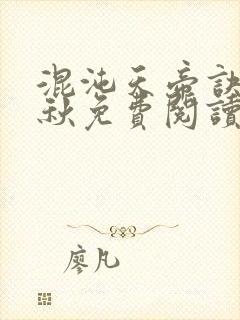 混沌天帝訣
秋免費閱讀
廖凡